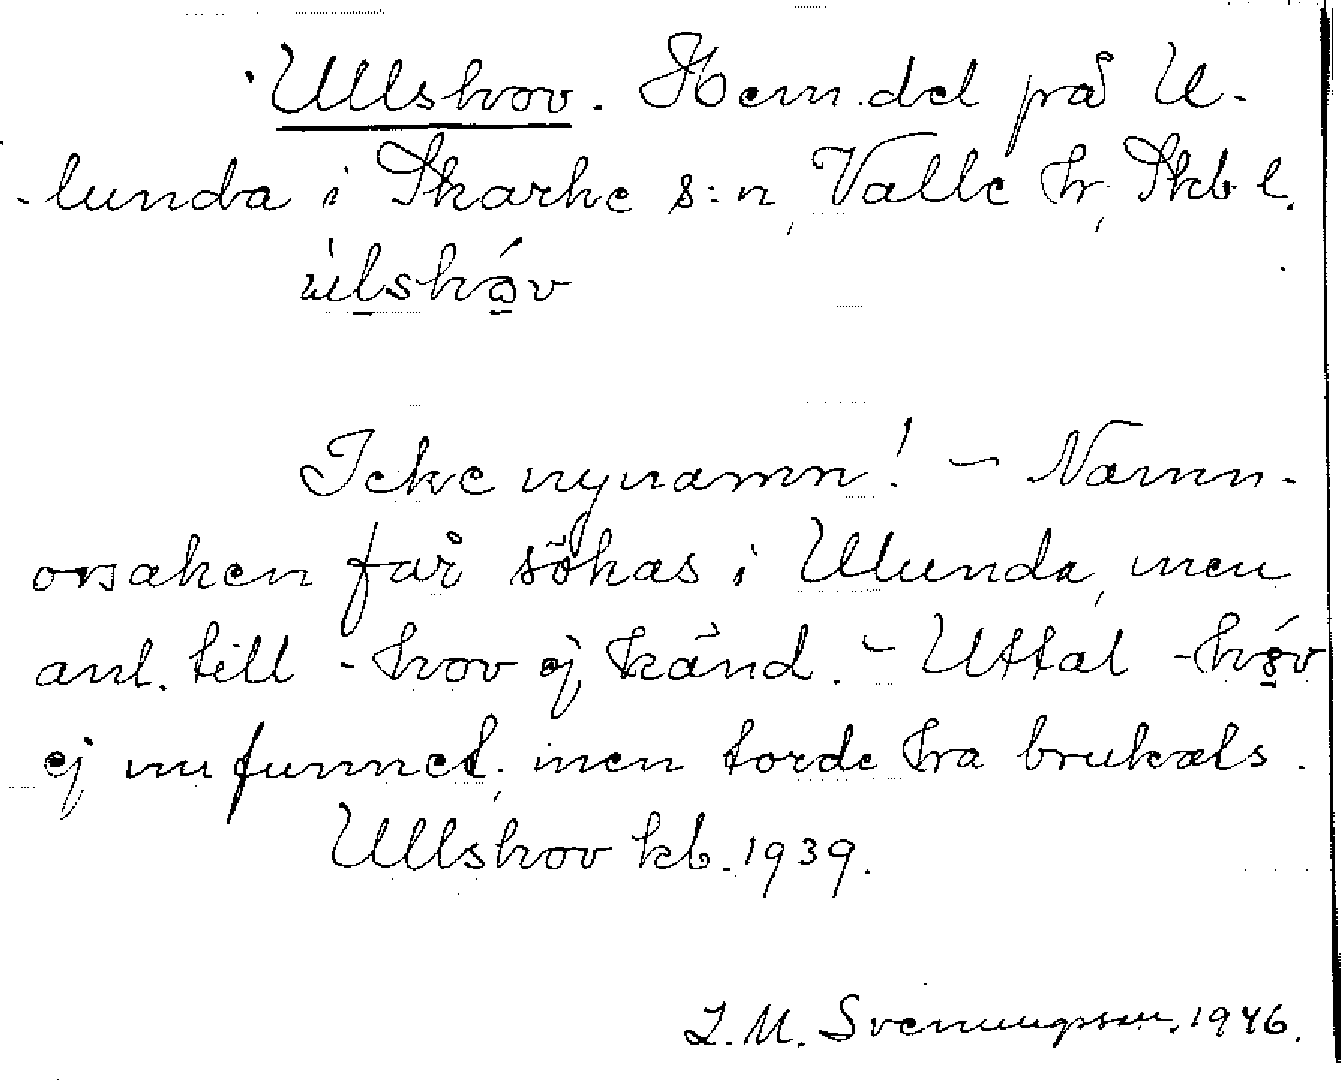 Ullshov. Hem.del på U-
lunda i Skarke s:n, Valle hr, Skb l.
ùlshóv
Icke nynamn! — Namn-
orsaken får sökas i Ulunda, men
anl. till -hov ej känd. — Uttal -hóv
ej nu funnet, men torde ha brukats.
Ullshov kb. 1939.
L. M. Svenungsson, 1946.